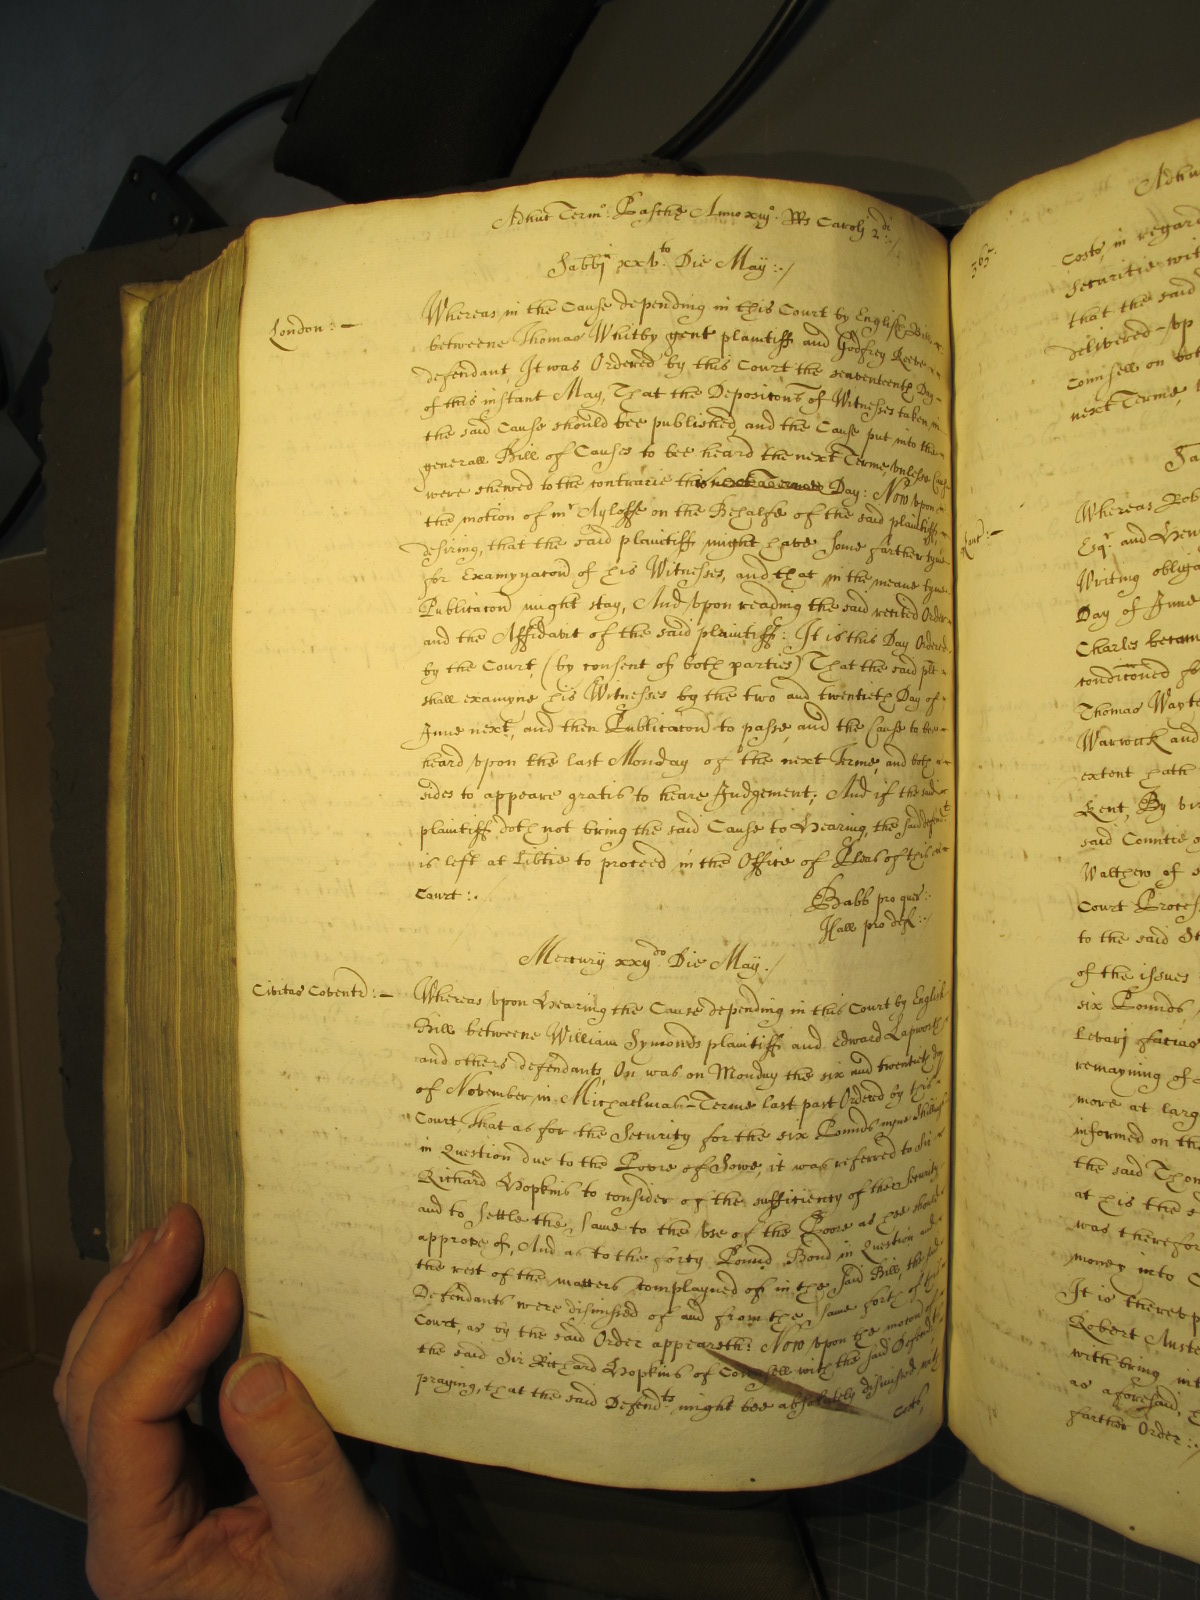 Adhuc Termo. Pasche Anno xiijo. Rs Caroli 2di:/
Sabbi xxvto. Die May:./
London:-
Whereas in the Cause depending in this Court by English Bill
betweene Thomas Whitby gent plaintiff and Godfrey Reeve
defendant, It was Ordered by this Court the seaventeenth Day
of this instant May, That the Depositons of Witnesses taken in
the said Cause should bee published, and the Cause put into the
generall Bill of Causes to bee heard the next Terme, unlesse Cause
were shewed to the contrarie this Day: Now upon
the motion of mr Ayloffe on the Behalfe of the said plaintiff,
desiring, that the said plaintiff might have some farther tyme
for Examynacon of his Witnesses, and that in the meane tyme
Publicacon might stay, And upon reading the said recited Order
and the Affidavit of the said plaintiff: It is this Day Ordered
by the Court, (by consent of both parties) That the said plt
shall examyne his Witnesses by the two and twentieth Day of
June next, and then Publicacon to passe, and the Cause to bee
heard upon the last Monday of the next Terme, and both
sides to appeare gratis to heare Judgement; And if the said
plaintiff doth not bring the said Cause to Hearing, the said defendt
is left at libtie to proceed in the Office of Pleas of this
Court:.
Babb pro quer:.
Hall pro def:./
Mercury xxijdo. Die May./
Civitas Coventr:-
Whereas upon Hearing the Cause depending in this Court by English
Bill betweene William Symonds plaintiff and Edward Lapworth
and others defendants, On was on Monday the six and twentieth day
of November in Michaelmas-Terme last past Ordered by this
Court, That as for the Security for the six Pounds nyne shillings
in Question due to the Poore of Sowe, it was referred to Sir
Richard Hopkins to consider of the sufficiency of the Security
and to settle the same to the use of the Poore as hee should
approve of, And as to the forty Pound Bond in Question and
the rest of the matters complayned of in the said Bill, the said
Defendants were dismissed of and from the same forth of this
Court, as by the said Order appeareth: Now upon the motion of
the said Sir Richard Hopkins of Counsell with the said Defendts
praying, that the said Defendts might bee absolutely dismissed with
Costs,
365.
Adhu
Costs, in regard
Securitie wit
that the said
delivered-up
Counsell on bot
next Terme
Sa
Kent:-
Whereas Rob
Esqr. and Hen
Writing obliga
Day of June
Charles becam
conditioned fo
Thomas Wayt
Warwick and
extent hath
Kent, By vi
said Countie o
Walthew of
Court Proces
to the said Sh
of the issues
six Pounds
Levarj facias
remayning of
more at larg
informed on th
the said Thom
at his the s
was therefor
money into C
It is thereup
Robert Auste
with bring int
as aforesaid,
farther Order:./